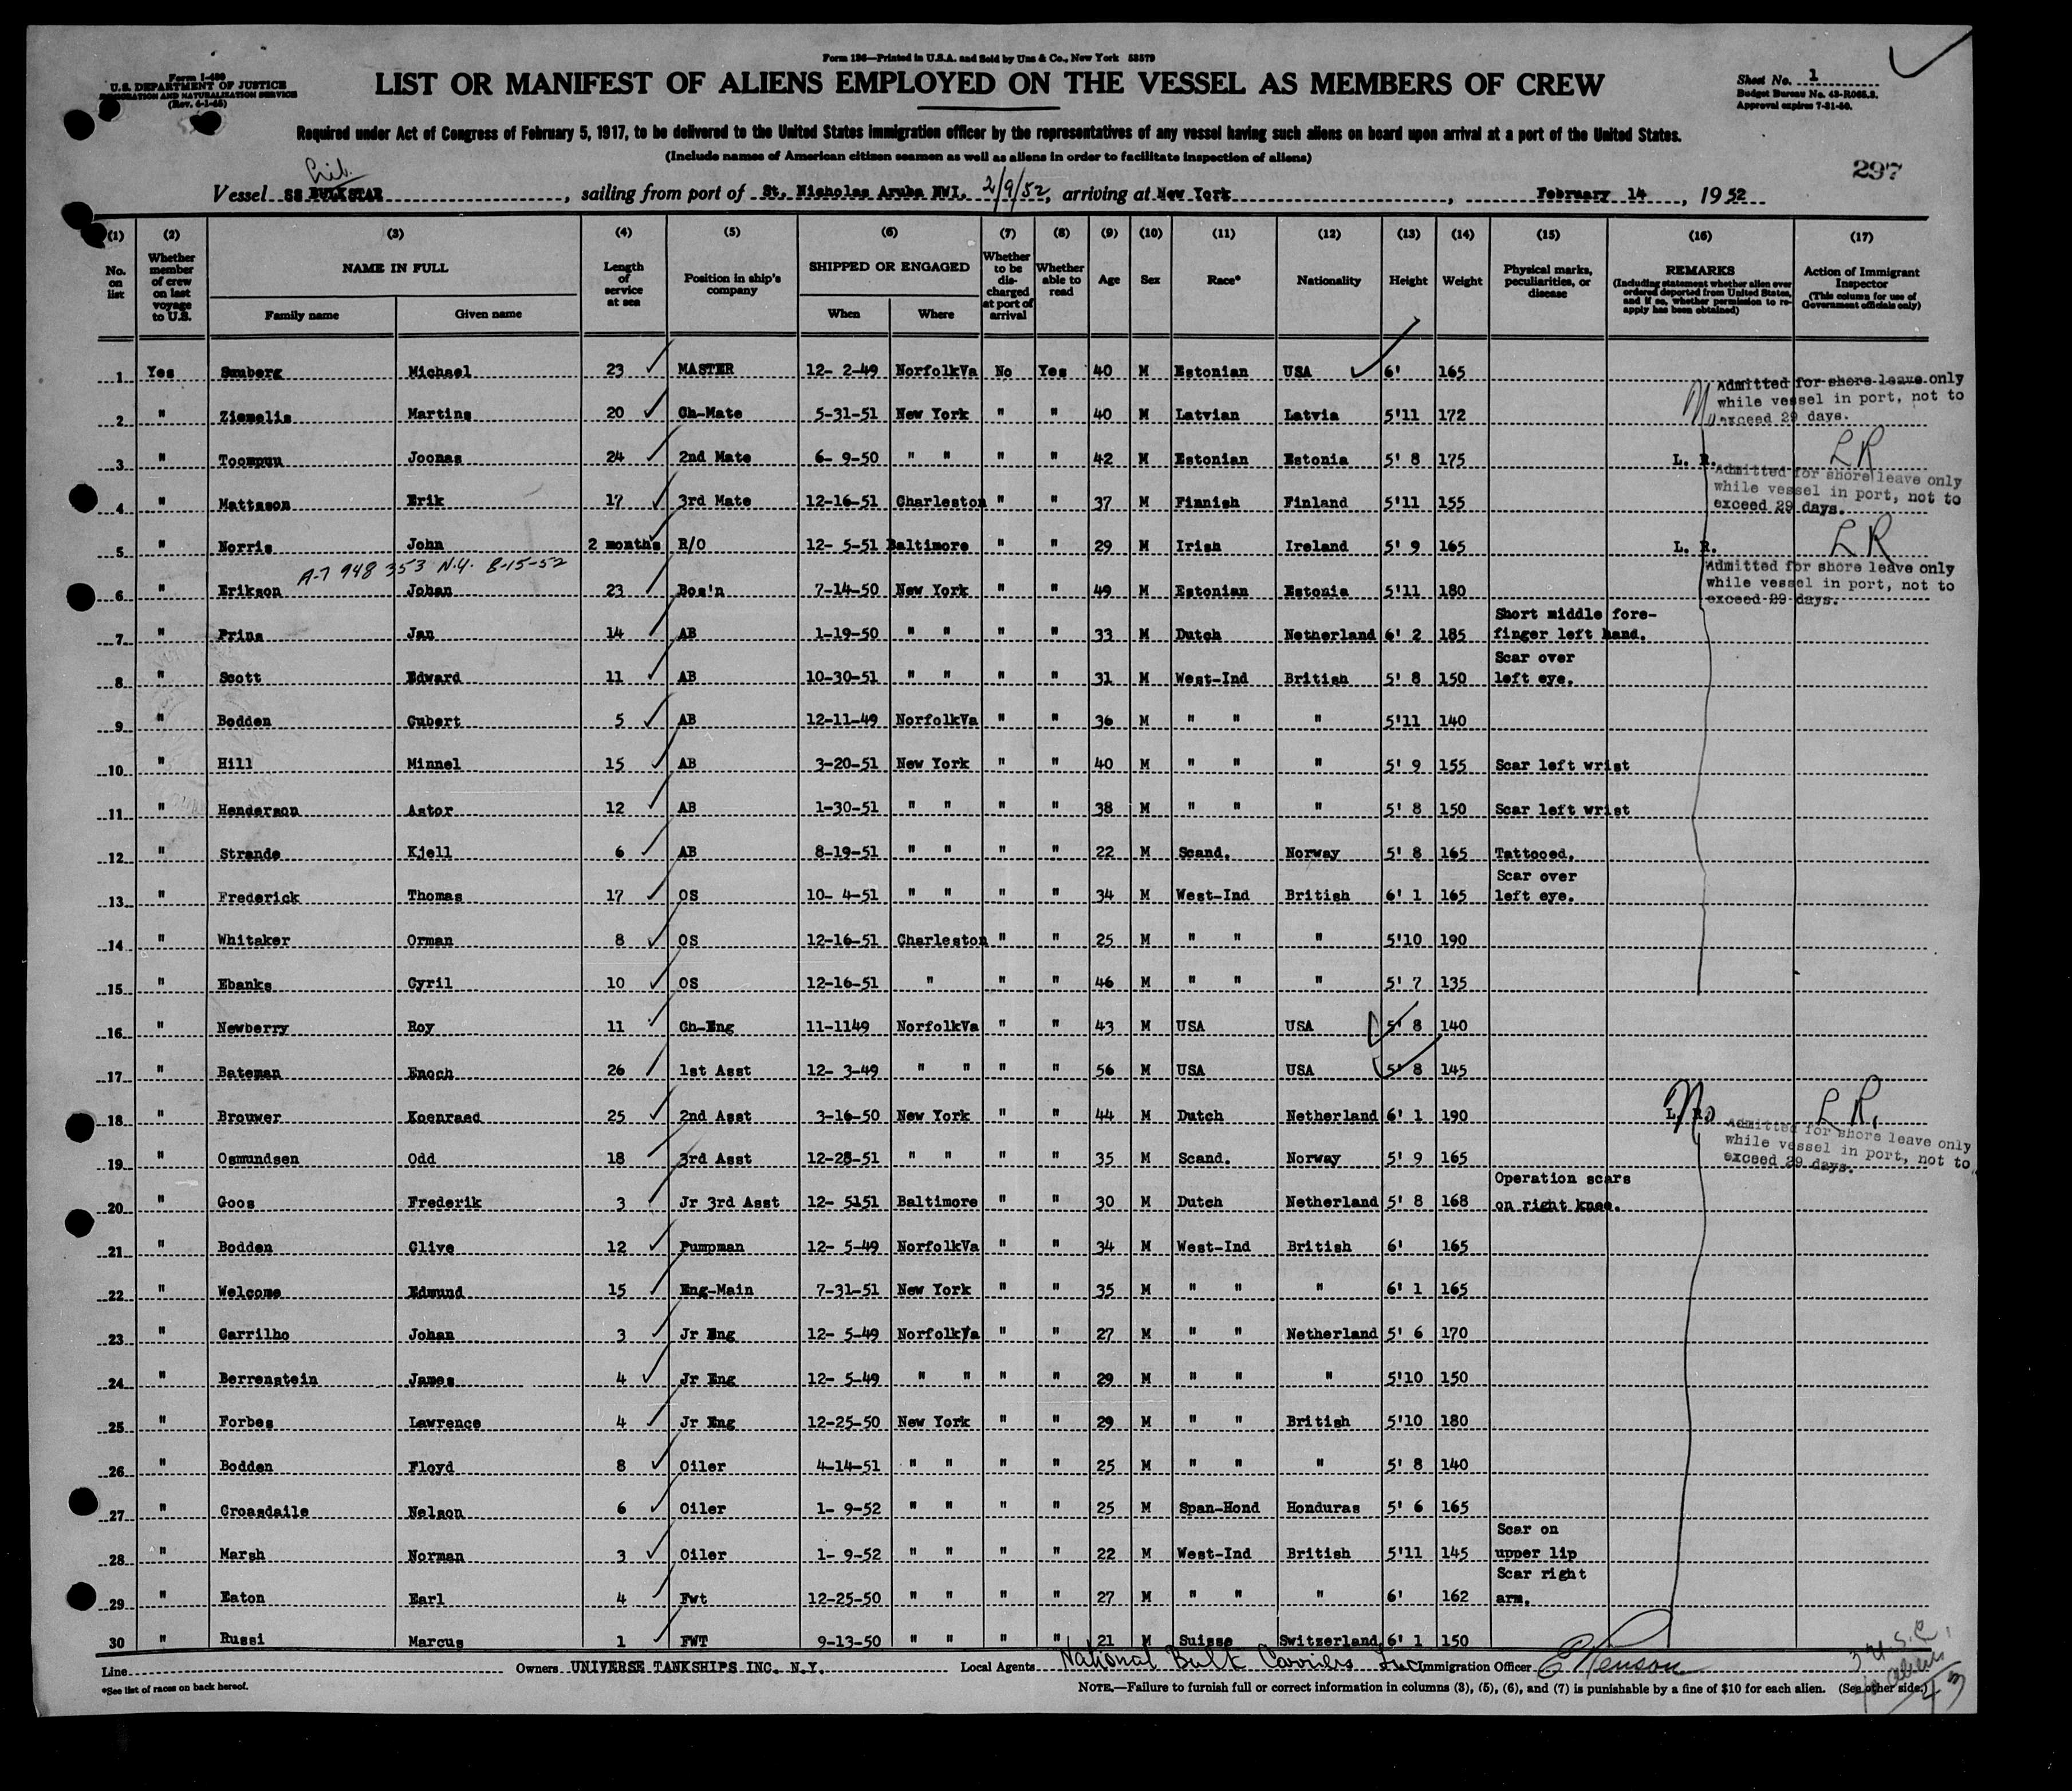 Form 136—Printed in U.S.A. and Sold by Unz & Co., New York 53579
Form I-480
U.S. DEPARTMENT OF JUSTICE
IMMIGRATION AND NATURALIZATION SERVICE
(Rev. 4-1-45)
LIST OR MANIFEST OF ALIENS EMPLOYED ON THE VESSEL AS MEMBERS OF CREW
Sheet No. 1
Budget Bureau No. 43-R065.3.
Approval expires 7-31-50.
Required under Act of Congress of February 5, 1917, to be delivered to the United States immigration officer by the representatives of any vessel having such aliens on board upon arrival at a port of the United States.
(Include names of American citizen seamen as well as aliens in order to facilitate inspection of aliens)
297
Lib.
Vessel SS BULKSTAR, sailing from port of St. Nicholas Aruba NWI. 2/9/52, arriving at New York, February 14, 1952
(1) (2) (3) (4) (5) (6) (7) (8) (9) (10) (11) (12) (13) (14) (15) (16) (17)
No. on list
Whether member of crew on last voyage to U.S.
NAME IN FULL
Family name Given name
Length of service at sea
Position in ship's company
SHIPPED OR ENGAGED
When Where
Whether to be discharged at port of arrival
Whether able to read
Age
Sex
Race*
Nationality
Height
Weight
Physical marks, peculiarities, or disease
REMARKS
(Including statement whether alien ever ordered deported from United States, and if so, whether permission to reapply has been obtained)
Action of Immigrant Inspector
(This column for use of Government officials only)
1 Yes Sauberg Michael 23 MASTER 12- 2-49 NorfolkVa No Yes 40 M Estonian USA 6' 165
Admitted for shore leave only
while vessel in port, not to
exceed 29 days.
2 " Ziemelis Martins 20 Ch-Mate 5-31-51 New York " " 40 M Latvian Latvia 5'11 172
3 " Toompuu Joonas 24 2nd Mate 6- 9-50 " " " " 42 M Estonian Estonia 5' 8 175 L. R. LR
Admitted for shore leave only
while vessel in port, not to
exceed 29 days.
4 " Mattsson Erik 17 3rd Mate 12-16-51 Charleston " " 37 M Finnish Finland 5'11 155
5 " Norris John 2 months R/O 12- 5-51 Baltimore " " 29 M Irish Ireland 5' 9 165 L. R. LR
A-7 948 353 N.Y. 8-15-52
Admitted for shore leave only
while vessel in port, not to
exceed 29 days.
6 " Erikson Johan 23 Bos'n 7-14-50 New York " " 49 M Estonian Estonia 5'11 180
7 " Prins Jan 14 AB 1-19-50 " " " " 33 M Dutch Netherland 6' 2 185 Short middle fore-
finger left hand.
8 " Scott Edward 11 AB 10-30-51 " " " " 31 M West-Ind British 5' 8 150 Scar over
left eye.
9 " Bodden Cubert 5 AB 12-11-49 NorfolkVa " " 36 M " " " 5'11 140
10 " Hill Minnel 15 AB 3-20-51 New York " " 40 M " " " 5' 9 155 Scar left wrist
11 " Henderson Astor 12 AB 1-30-51 " " " " 38 M " " " 5' 8 150 Scar left wrist
12 " Strande Kjell 6 AB 8-19-51 " " " " 22 M Scand. Norway 5' 8 165 Tattooed.
13 " Frederick Thomas 17 OS 10- 4-51 " " " " 34 M West-Ind British 6' 1 165 Scar over
left eye.
14 " Whitaker Orman 8 OS 12-16-51 Charleston " " 25 M " " " 5'10 190
15 " Ebanks Cyril 10 OS 12-16-51 " " " 46 M " " " 5' 7 135
16 " Newberry Roy 11 Ch-Eng 11-1149 NorfolkVa " " 43 M USA USA 5' 8 140
17 " Bateman Enoch 26 1st Asst 12- 3-49 " " " " 56 M USA USA 5' 8 145
18 " Brouwer Koenraad 25 2nd Asst 3-16-50 New York " " 44 M Dutch Netherland 6' 1 190 L. R. No L.R.
Admitted for shore leave only
while vessel in port, not to
exceed 29 days.
19 " Osmundsen Odd 18 3rd Asst 12-28-51 " " " " 35 M Scand. Norway 5' 9 165
20 " Goos Frederik 3 Jr 3rd Asst 12- 5151 Baltimore " " 30 M Dutch Netherland 5' 8 168 Operation scars
on right knee.
21 " Bodden Clive 12 Pumpman 12- 5-49 NorfolkVa " " 34 M West-Ind British 6' 165
22 " Welcome Edmund 15 Eng-Main 7-31-51 New York " " 35 M " " " 6' 1 165
23 " Carrilho Johan 3 Jr Eng 12- 5-49 NorfolkVa " " 27 M " " Netherland 5' 6 170
24 " Berrenstein James 4 Jr Eng 12- 5-49 " " " " 29 M " " " 5'10 150
25 " Forbes Lawrence 4 Jr Eng 12-25-50 New York " " 29 M " " British 5'10 180
26 " Bodden Floyd 8 Oiler 4-14-51 " " " " 25 M " " " 5' 8 140
27 " Croasdaile Nelson 6 Oiler 1- 9-52 " " " " 25 M Span-Hond Honduras 5' 6 165
28 " Marsh Norman 3 Oiler 1- 9-52 " " " " 22 M West-Ind British 5'11 145 Scar on
upper lip
29 " Eaton Earl 4 Fwt 12-25-50 " " " " 27 M " " " 6' 162 Scar right
arm.
30 " Russi Marcus 1 FWT 9-13-50 " " " " 21 M Suisse Switzerland 6' 1 150
Line Owners UNIVERSE TANKSHIPS INC. N.Y. Local Agents National Bulk Carriers Inc. Immigration Officer
3 U.S.C.
*See list of races on back hereof.
NOTE.—Failure to furnish full or correct information in columns (3), (5), (6), and (7) is punishable by a fine of $10 for each alien. (See other side.)